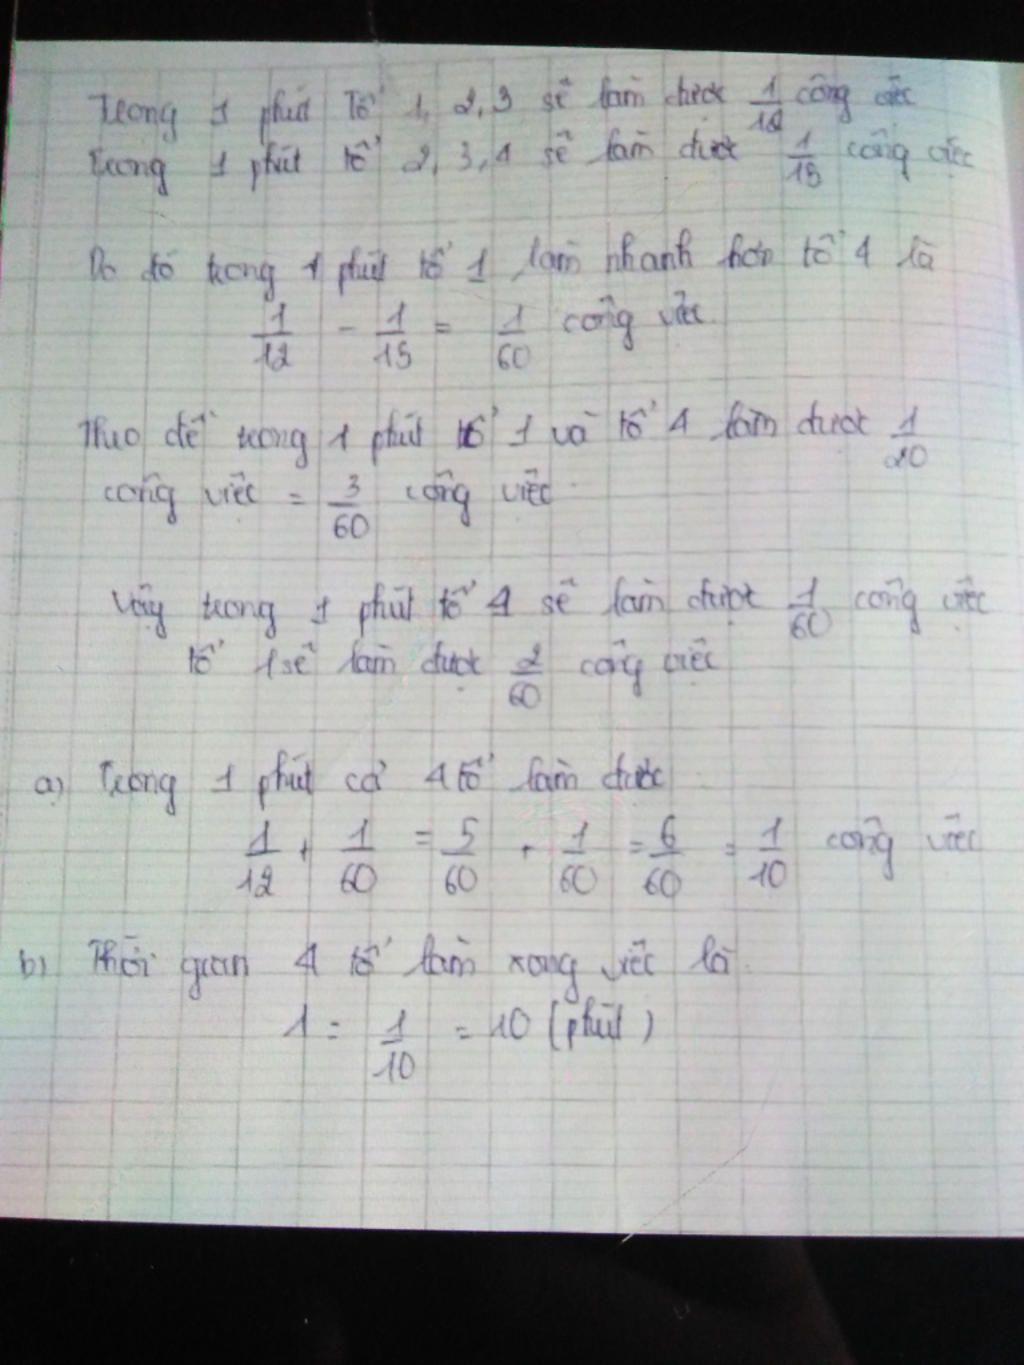 Trong 1 phút tổ 1, 2, 3 sẽ làm được 1/12 công việc
Trong 1 phút tổ 2, 3, 4 sẽ làm được 1/15 công việc
Do đó trong 1 phút tổ 1 làm nhanh hơn tổ 4 là
1/12 - 1/15 = 1/60 công việc
Theo đề trong 1 phút tổ 1 và tổ 4 làm được 1/20
công việc = 3/60 công việc
Vậy trong 1 phút tổ 4 sẽ làm được 1/60 công việc
tổ 1 sẽ làm được 2/60 công việc
a) Trong 1 phút cả 4 tổ làm được
1/12 + 1/60 = 5/60 + 1/60 = 6/60 = 1/10 công việc
b) Thời gian 4 tổ làm xong việc là
1 : 1/10 = 10 (phút)